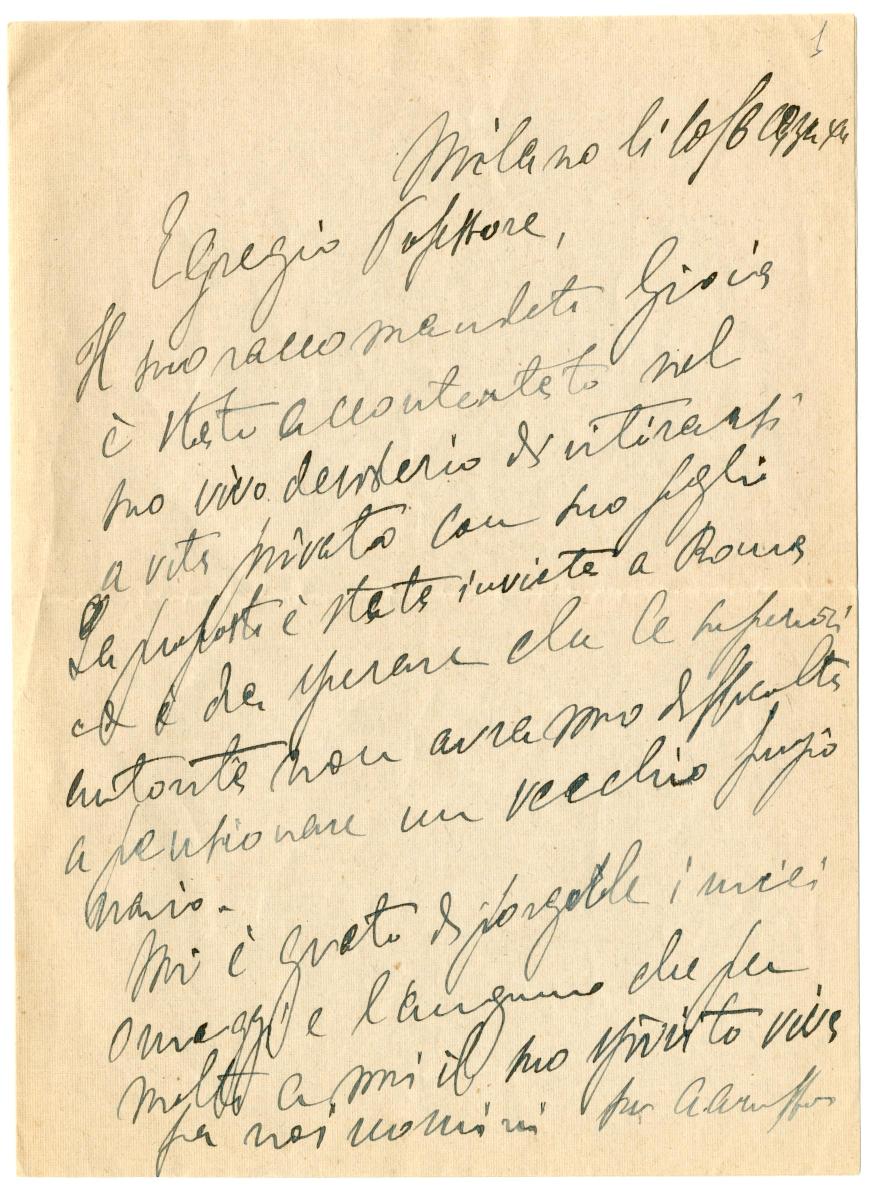 1
Milano li 10/6
Egregio Professore,
Il suo raccomandato Gioia
è stato accontentato nel
suo vivo desiderio di ritirarsi
a vita privata con suo figlio
La proposta è stata inviata a Roma
ed è da sperare che le superiori
autorità non avranno difficoltà
a pensionare un vecchio funzio
nario.
Mi è grato di porgerle i miei
omaggi e l'augurio che per
molti anni il suo spirito viva
fra noi uomini suo